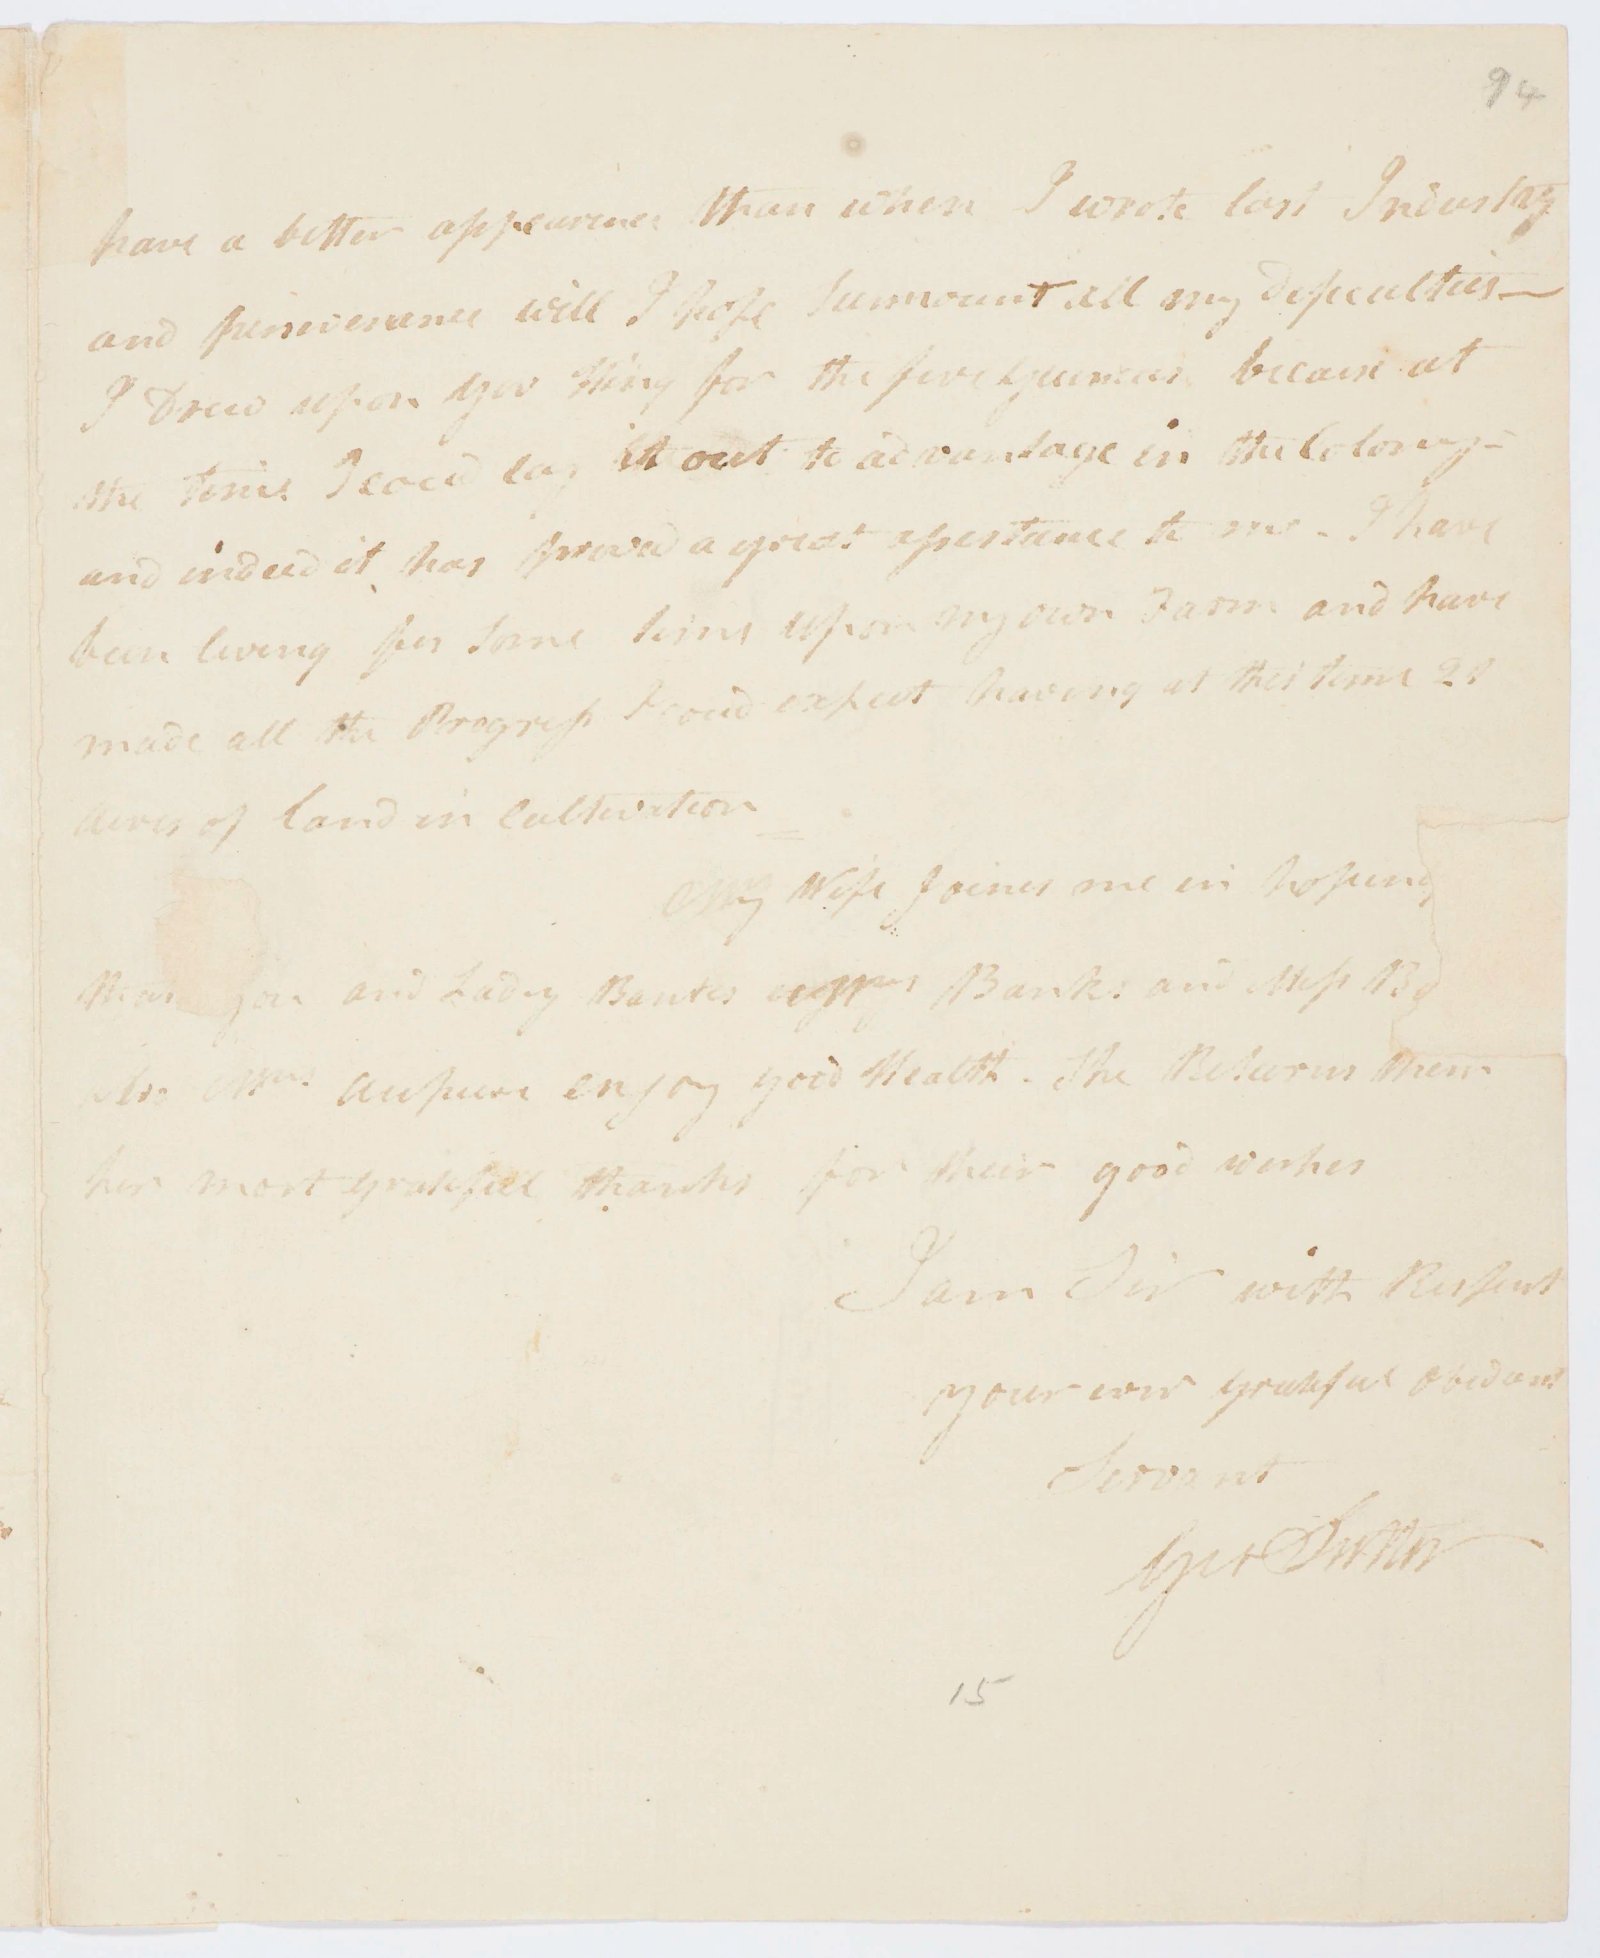 94
have a better appearance than when I wrote last Industry
and perseverance will I hope Surmount all my difeculties —
I Drew upon Gov King for the five Guineas because at
the time I coud lay it out to advantage in the Colony –
and indeed it has proved a great assestance to me – I have
been leving for Some time upon my own Farm and have
made all the Progress I coud expect having at this time 21
acres of land in Cultivation
My Wife Joines me in hopeing
that you and Lady Bankes Banks and Miss
enjoy good Health – She Returns them
her most gratefull thanks for their good wishes
I am Sir with Respect
your ever gratefull obedant
Servant
Geo Suttor
15